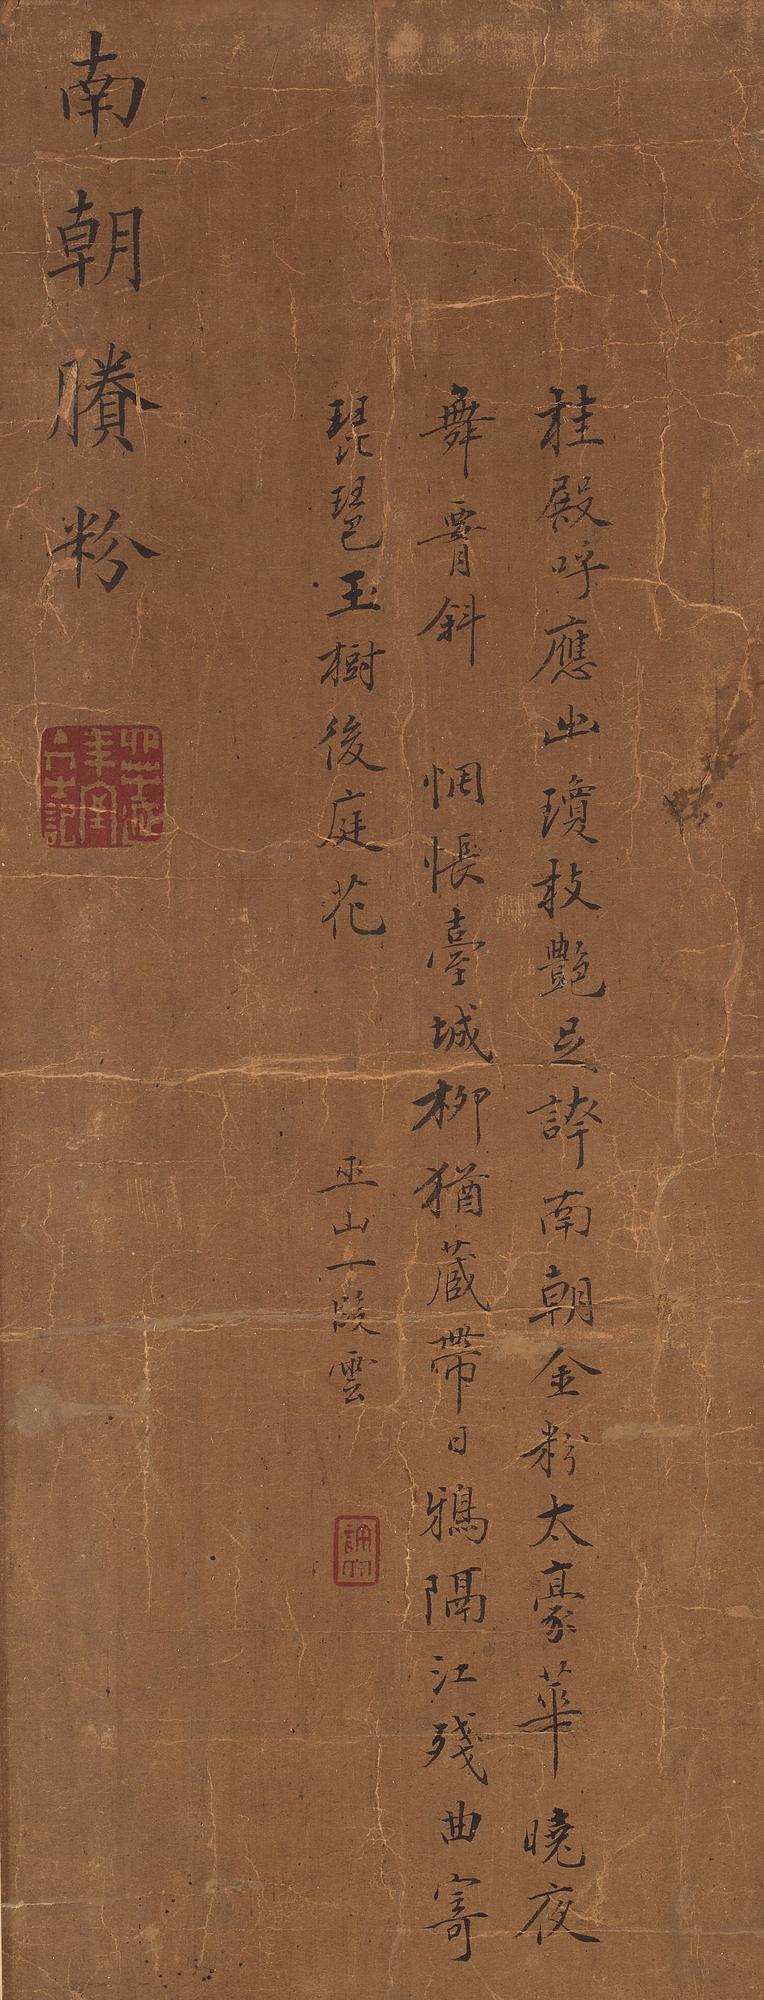 桂殿呼應出瓊枝艷足誇南朝金粉太豪華 曉夜
舞霄斜 惆悵臺城柳猶藏帶日鴉隔江殘曲寄
琵琶玉樹後庭花 巫山一段雲
南朝賸粉